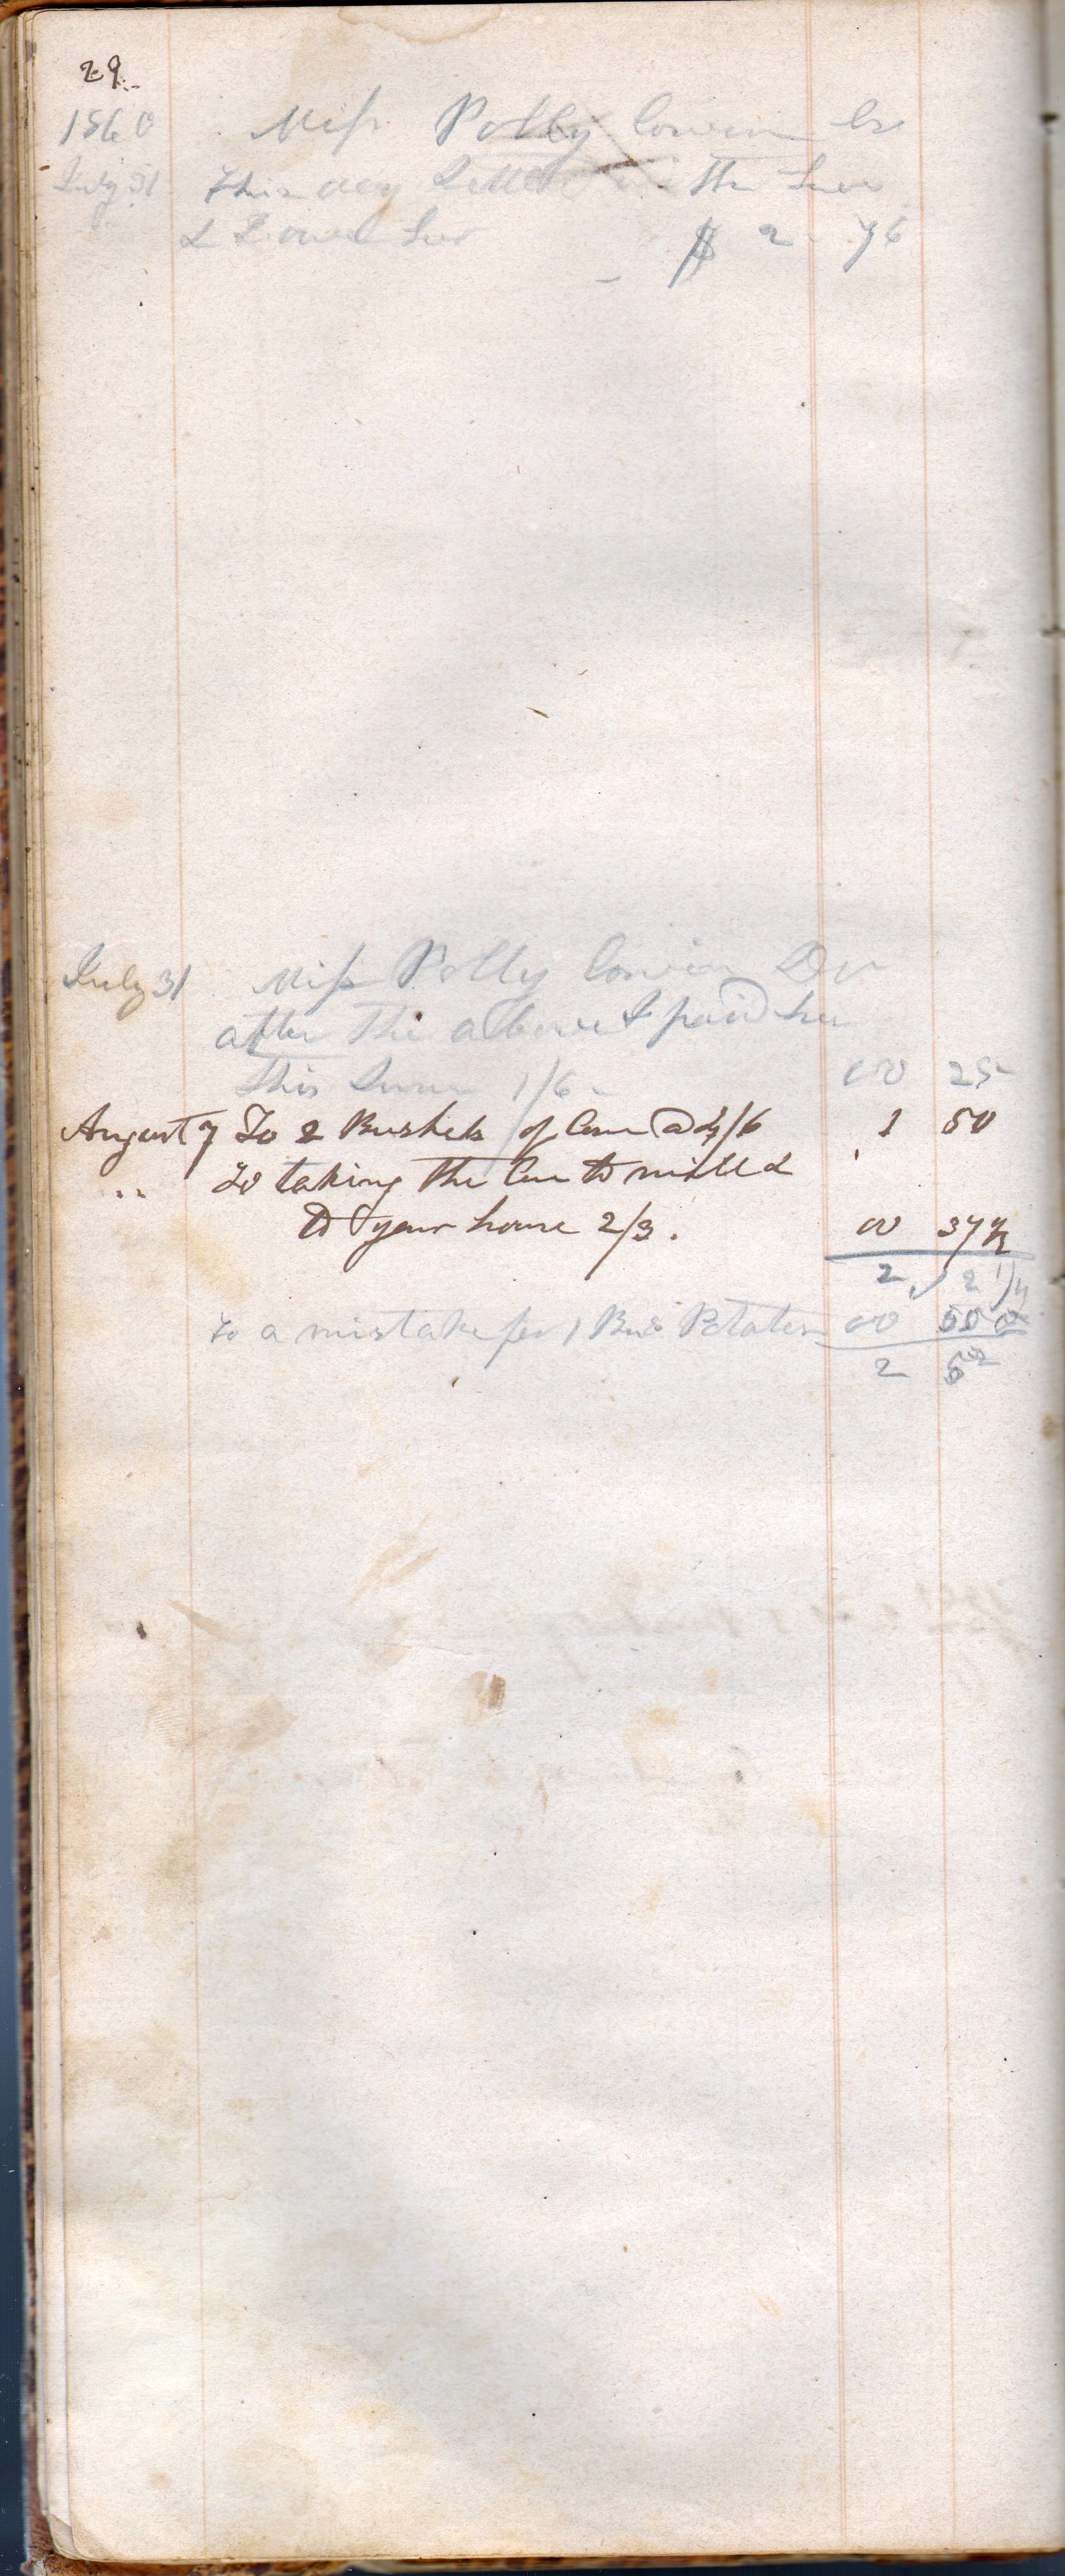 29.
1860 Miss Polly Cowin Cr
July 31 This day Settled with her
& I owed her $ 2 76
July 31 Miss Polly Cowin Dr
after the above I paid her
this Sum 1/6 00 25
August 7 To 2 Bushels of Corn @ 4/6 1 50
" To taking the Corn to mill &
to your house 2/3. 00 37½
2 12 1/2
To a mistake for 1 Bus Potatoes 00 50 0
2 62